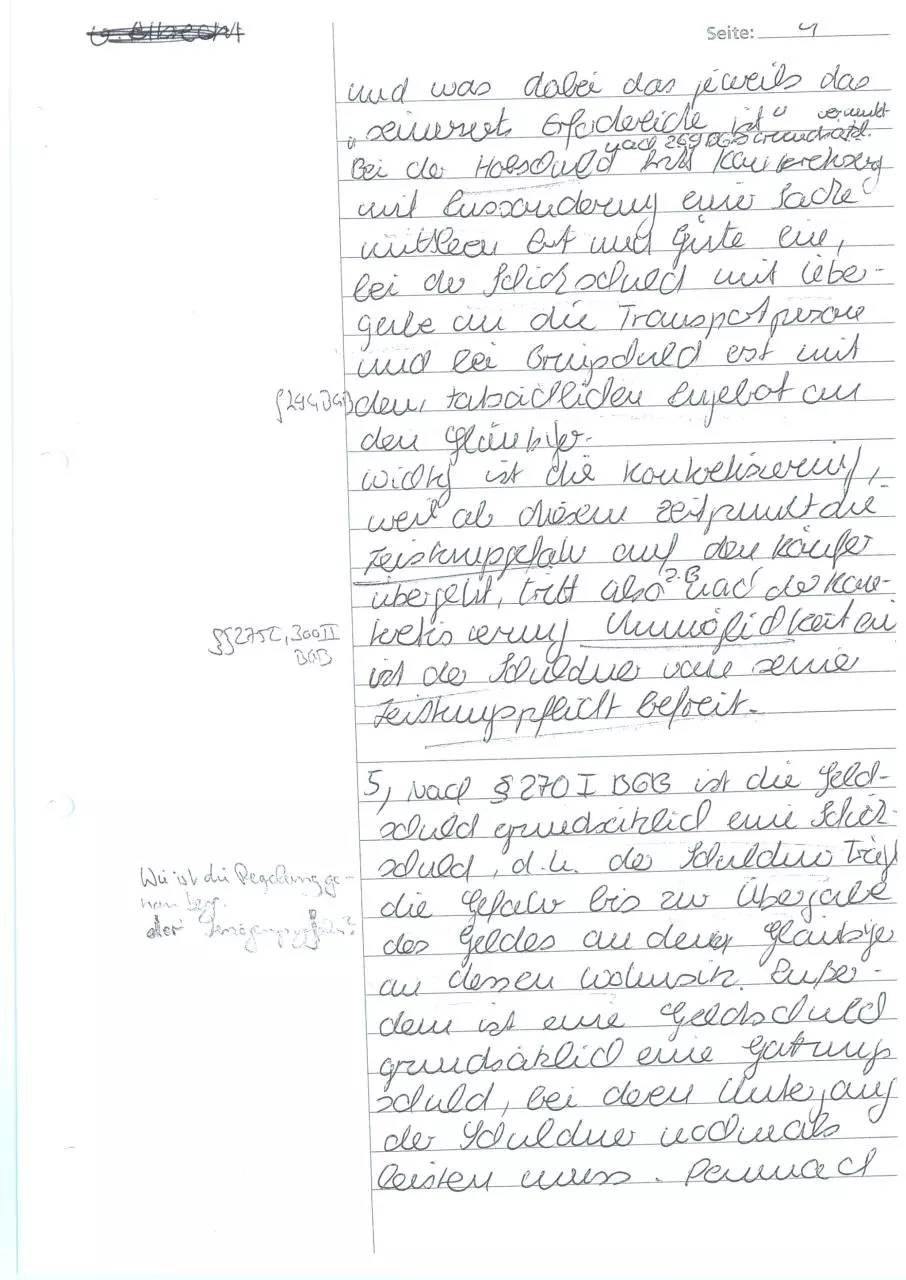 Seite: 4
und was dabei das jeweils das
"seinerseits Erforderliche ist"
nach 269 BGB grundsätzl.
Bei der Holschuld tritt Konkretisierung
mit Aussonderung einer Sache
mittlerer Art und Güte ein,
bei der Schickschuld mit Über-
gabe an die Transportperson
und bei Bringschuld erst mit
§ 294 BGB dem tatsächlichen Angebot an
den Gläubiger.
Wichtig ist die Konkretisierung,
weil ab diesem Zeitpunkt die
Leistungsgefahr auf den Käufer
übergeht, tritt also z.B. nach der Kon-
kretisierung Unmöglichkeit ein
§§ 275 I, 300 II
BGB
ist der Schuldner von seiner
Leistungspflicht befreit.
5, Nach § 270 I BGB ist die Geld-
schuld grundsätzlich eine Schick-
schuld, d.h. der Schuldner trägt
Wie ist die Regelung ge-
nau bzgl.
der
die Gefahr bis zur Übergabe
des Geldes an den Gläubiger
an dessen Wohnsitz. Außer-
dem ist eine Geldschuld
grundsätzlich eine Gattungs
schuld, bei deren Untergang
der Schuldner nochmals
leisten muss. Demnach